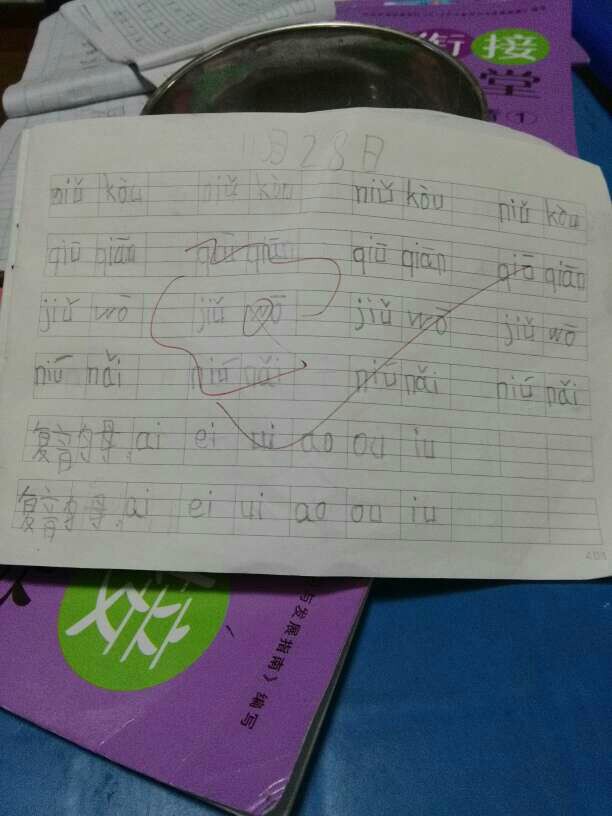 衔接
堂
(1)
11月28日
niǔ kòu niǔ kòu niǔ kòu niǔ kòu
qiū qiān qiū qiān qiū qiān qiū qiān
jiǔ wō jiǔ wō jiǔ wō jiǔ wō
niú nǎi niú nǎi niú nǎi niú nǎi
复韵母: ai ei ui ao ou iu
复韵母: ai ei ui ao ou iu
接
与发展指南》编写